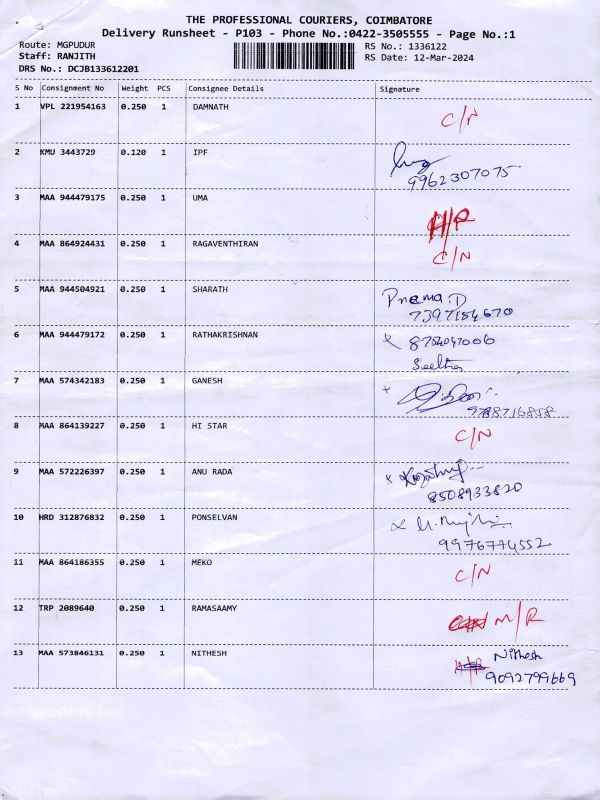 THE PROFESSIONAL COURIERS, COIMBATORE
Delivery Runsheet - P103 - Phone No.:0422-3505555 - Page No.:1
Route: MGPUDUR RS No.: 1336122
Staff: RANJITH RS Date: 12-Mar-2024
DRS No.: DCJB133612201
S No Consignment No Weight PCS Consignee Details Signature
1 VPL 221954163 0.250 1 DAMNATH C/N
2 KMU 3443729 0.120 1 IPF
9962307075
3 MAA 944479175 0.250 1 UMA H/R
4 MAA 864924431 0.250 1 RAGAVENTHIRAN C/N
5 MAA 944504921 0.250 1 SHARATH Prema.D
7397184670
6 MAA 944479172 0.250 1 RATHAKRISHNAN
Seetha
7 MAA 574342183 0.250 1 GANESH
9788716858
8 MAA 864139227 0.250 1 HI STAR C/N
9 MAA 572226397 0.250 1 ANU RADA
8508933820
10 HRD 312876832 0.250 1 PONSELVAN
9976774552
11 MAA 864186355 0.250 1 MEKO C/N
12 TRP 2089640 0.250 1 RAMASAAMY M/R
13 MAA 573846131 0.250 1 NITHESH Nithesh
9092799669